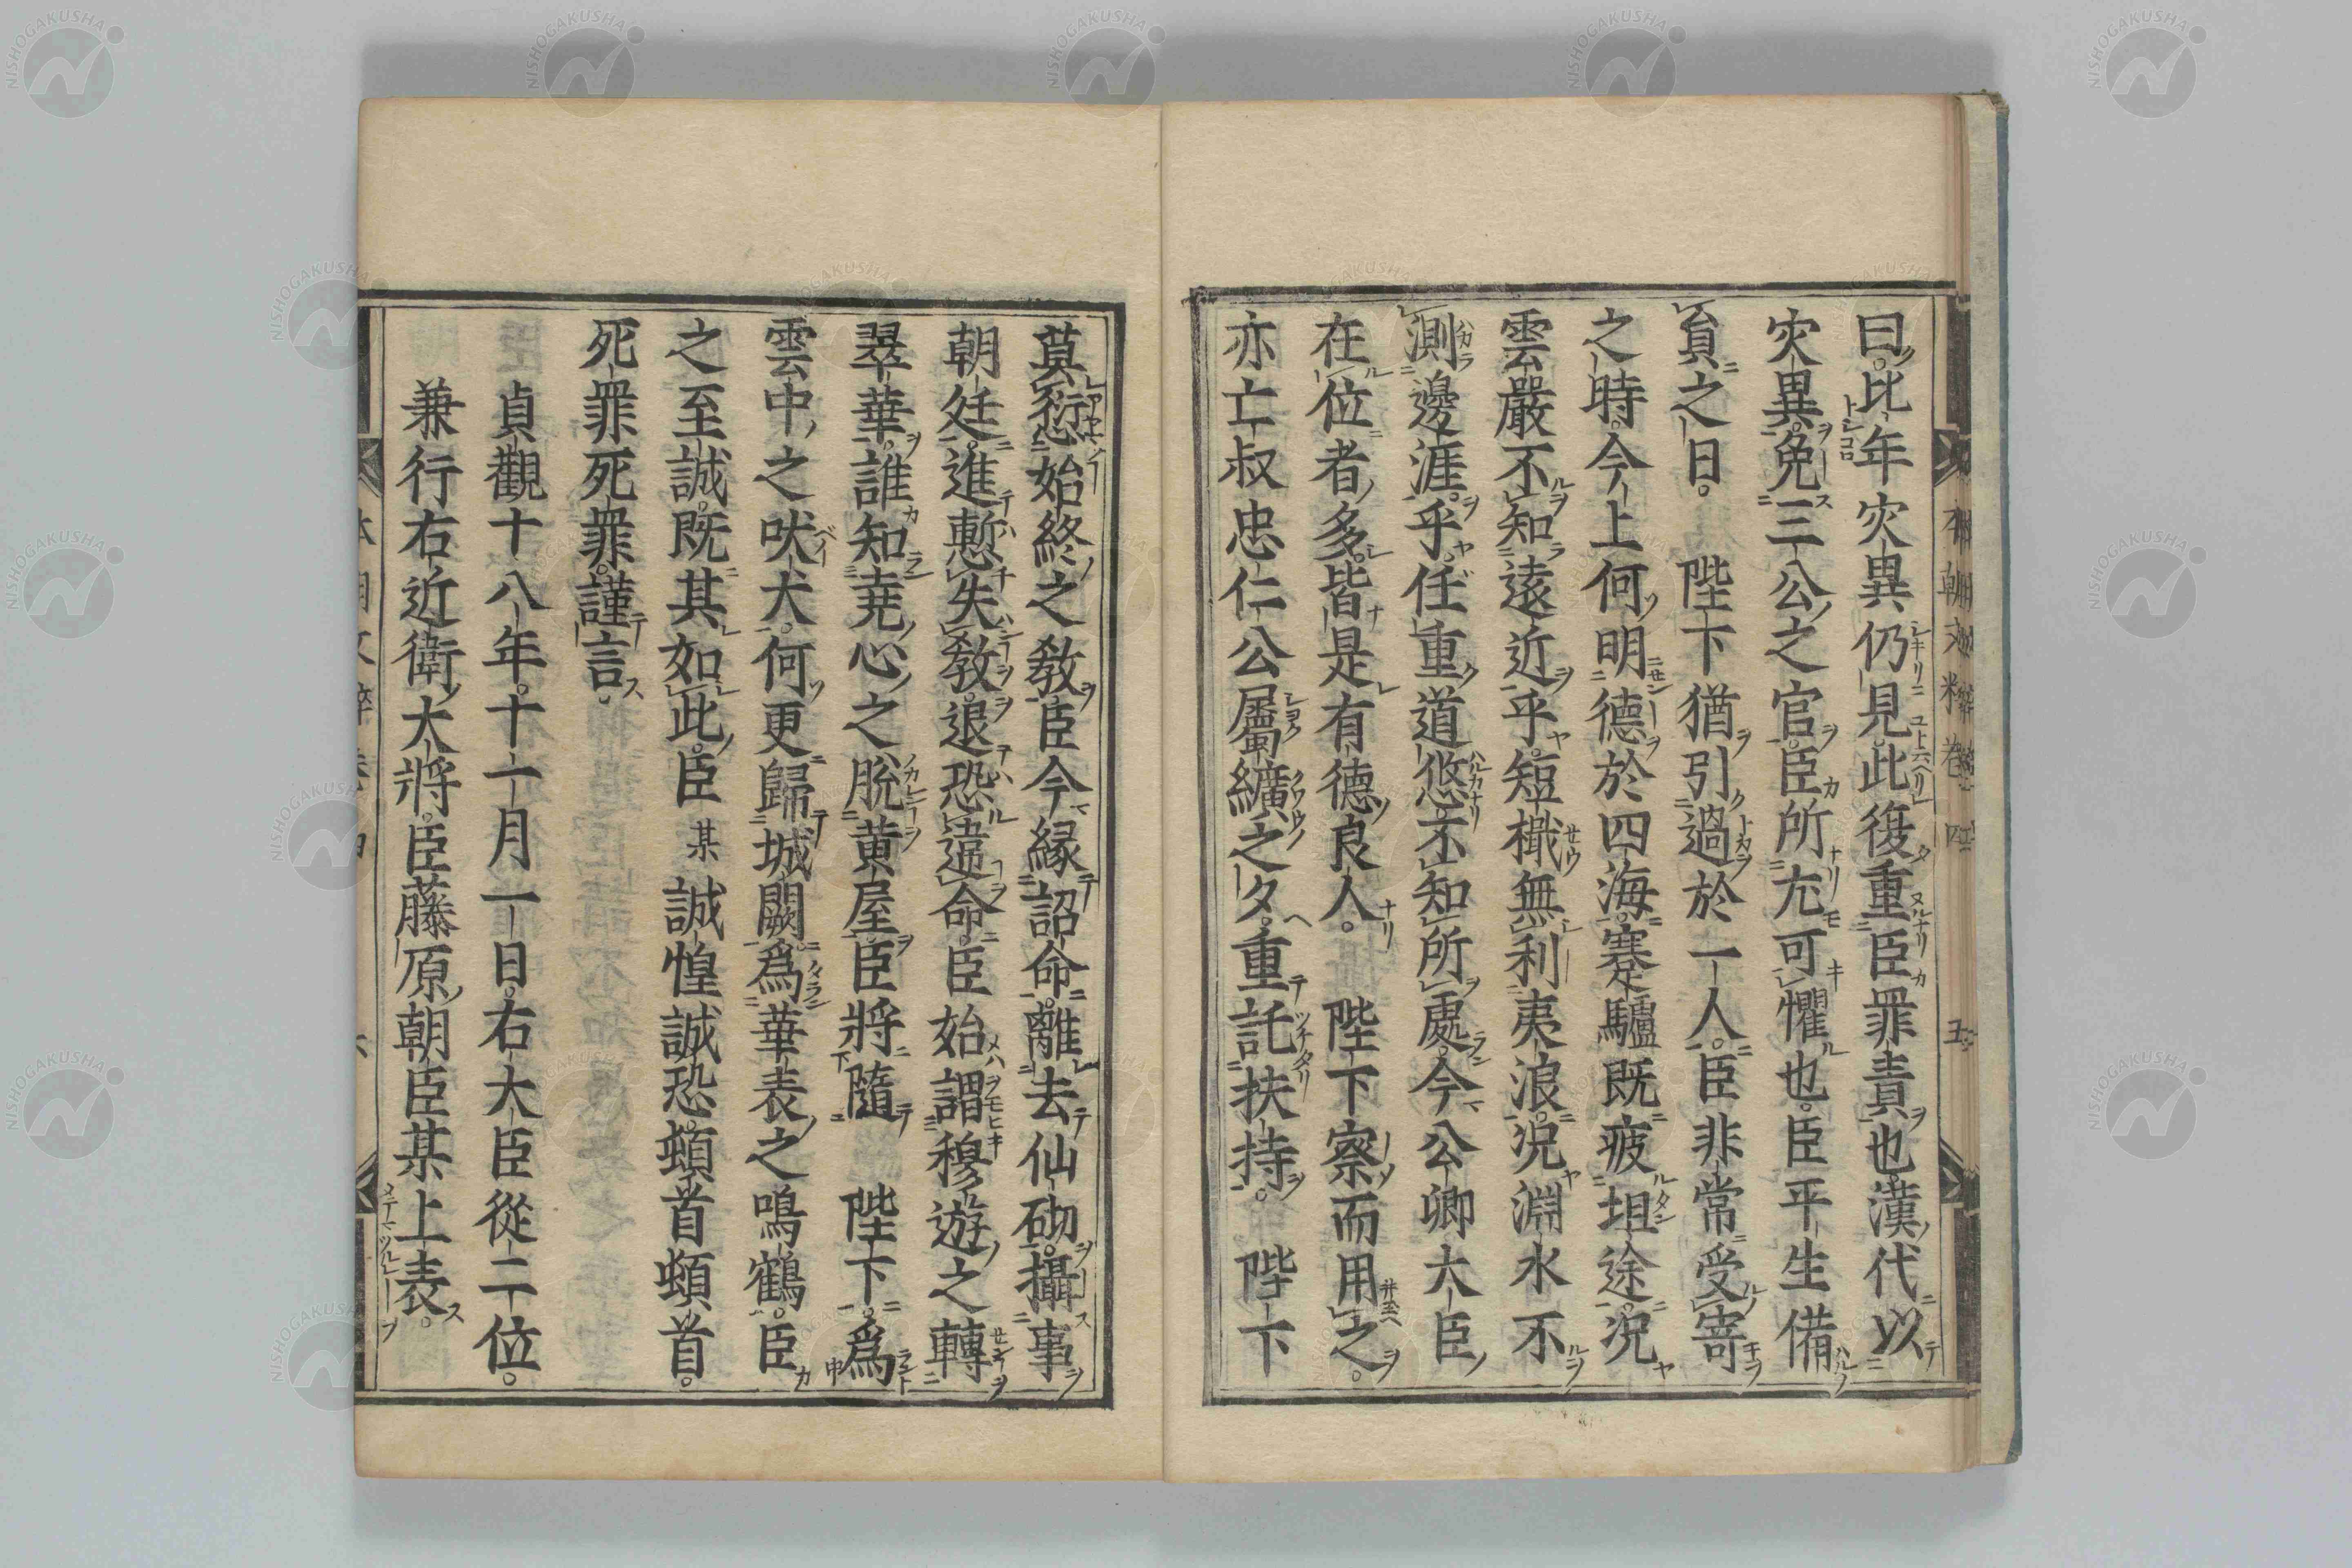 曰。比年灾異仍見。此復重臣罪責也。漢代以
灾異。免三公之官。臣所尤可懼也。臣平生備
員之日。陛下猶引過於一人。臣非常受寄
之時。今上何明德於四海。蹇驢既疲坦途。況
雲嚴不知遠近乎。短檝無利夷浪。況淵水不
測邊涯乎。任重道悠。不知所處。今公卿大臣
在位者多。皆是有德良人。陛下察而用之。
亦亡叔忠仁公屬纊之夕。重託扶持。陛下
莫愆始終之教。臣今縁詔命。離去仙砌。攝事
朝廷。進慙失教。退恐違命。臣始謂穆遊之轉
翠華。誰知尭心之脫黄屋。臣將隨陛下。爲
雲中之吠犬。何更歸城闕。爲華表之鳴鶴。臣
之至誠。既其如此。臣某誠惶誠恐。頓首頓首。
死罪死罪。謹言。
貞觀十八年。十一月一日。右大臣從二位。
兼行右近衛大將。臣藤原朝臣某上表。
NISHOGAKUSHA